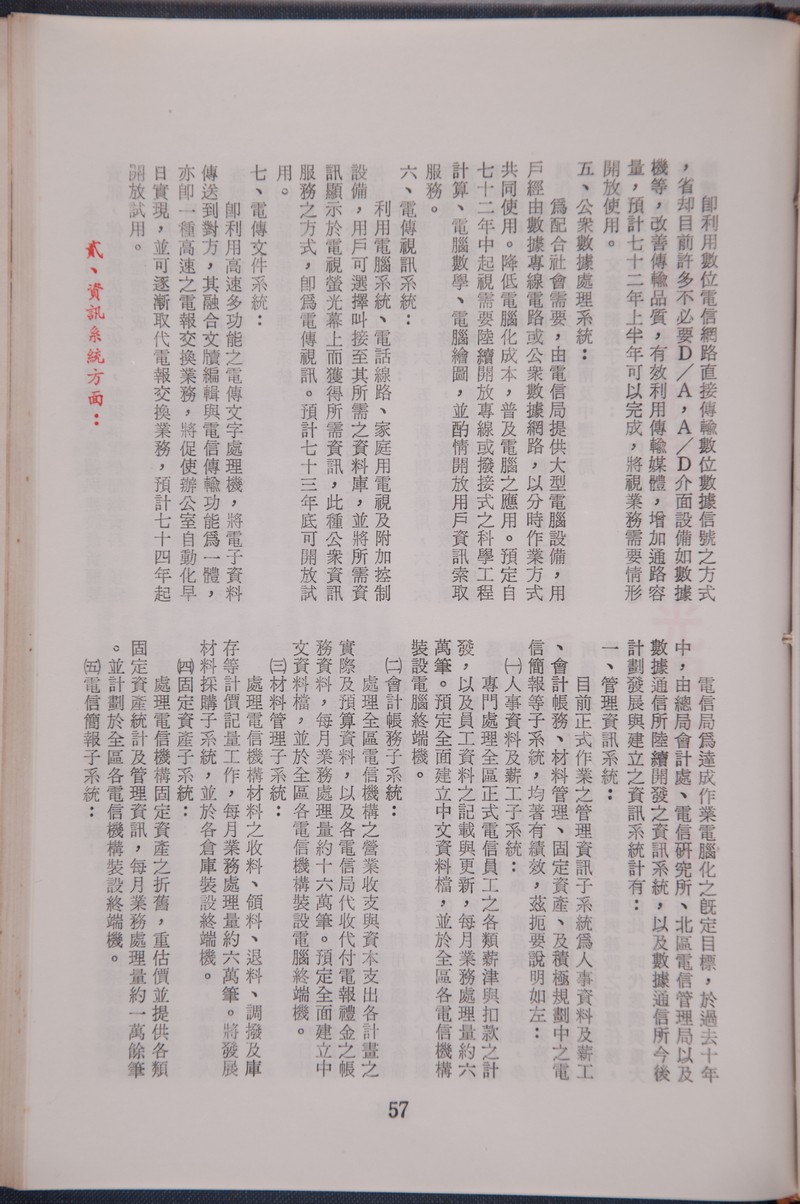 卽利用數位電信網路直接傳輸數位數據信號之方式
，省却目前許多不必要D／A，A／D介面設備如數據
機等，改善傳輸品質，有效利用傳輸媒體，增加通路容
量，預計七十二年上半年可以完成，將視業務需要情形
開放使用。
五、公衆數據處理系統：
爲配合社會需要，由電信局提供大型電腦設備，用
戶經由數據專線電路或公衆數據網路，以分時作業方式
共同使用。降低電腦化成本，普及電腦之應用。預定自
七十二年中起視需要陸續開放專線或撥接式之科學工程
計算、電腦數學、電腦繪圖，並酌情開放用戶資訊索取
服務。
六、電傳視訊系統：
利用電腦系統、電話線路、家庭用電視及附加控制
設備，用戶可選擇叫接至其所需之資料庫，並將所需資
訊顯示於電視螢光幕上而獲得所需資訊，此種公衆資訊
服務之方式，卽爲電傳視訊。預計七十三年底可開放試
用。
七、電傳文件系統：
卽利用高速多功能之電傳文字處理機，將電子資料
傳送到對方，其融合文牘編輯與電信傳輸功能爲一體，
亦卽一種高速之電報交換業務，將促使辦公室自動化早
日實現，並可逐漸取代電報交換業務，預計七十四年起
開放試用。
貳、資訊系統方面：
電信局爲達成作業電腦化之旣定目標，於過去十年
中，由總局會計處、電信研究所、北區電信管理局以及
數據通信所陸續開發之資訊系統，以及數據通信所今後
計劃發展與建立之資訊系統計有：
一、管理資訊系統：
目前正式作業之管理資訊子系統爲人事資料及薪工
、會計帳務、材料管理、固定資產、及積極規劃中之電
信簡報等子系統，均著有績效，茲扼要說明如左：
㈠人事資料及薪工子系統：
專門處理全區正式電信員工之各類薪津與扣款之計
發，以及員工資料之記載與更新，每月業務處理量約六
萬筆。預定全面建立中文資料檔，並於全區各電信機構
裝設電腦終端機。
㈡會計帳務子系統：
處理全區電信機構之營業收支與資本支出各計畫之
實際及預算資料，以及各電信局代收代付電報禮金之帳
務資料，每月業務處理量約十六萬筆。預定全面建立中
文資料檔，並於全區各電信機構裝設電腦終端機。
㈢材料管理子系統：
處理電信機構材料之收料、領料、退料、調撥及庫
存等計價記量工作，每月業務處理量約六萬筆。將發展
材料採購子系統，並於各倉庫裝設終端機。
㈣固定資產子系統：
處理電信機構固定資產之折舊，重估價並提供各類
固定資產統計及管理資訊，每月業務處理量約一萬餘筆
。並計劃於全區各電信機構裝設終端機。
㈤電信簡報子系統：
57